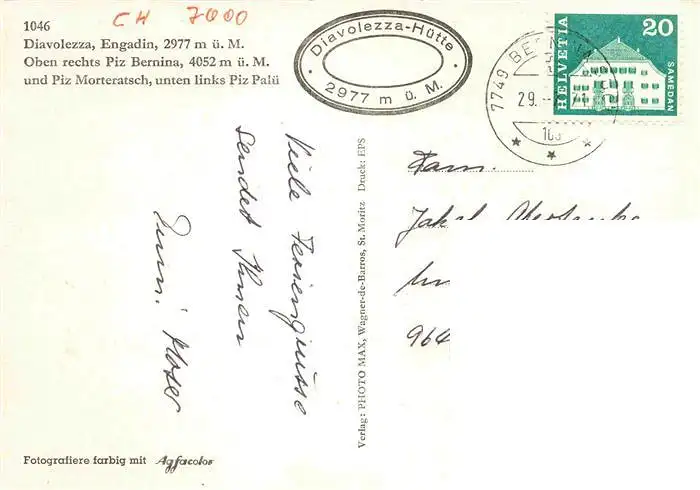 CH 7000
1046
Diavolezza, Engadin, 2977 m ü. M.
Oben rechts Piz Bernina, 4052 m ü. M.
und Piz Morteratsch, unten links Piz Palü
Diavolezza-Hütte
2977 m ü. M.
7749 BERNINA
29.
HELVETIA
20
SAMEDAN
Viele Feriengrüsse
sendet Ihnen
Moser
Verlag: PHOTO MAX, Wagner-de-Barros, St. Moritz Druck: EPS
Fam.
Jakob
964
Fotografiere farbig mit Agfacolor